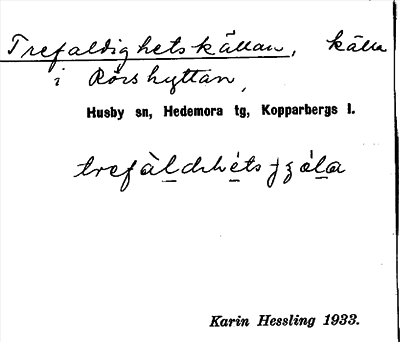 Trefaldighetskällan, källa
i Rörshyttan,
Husby sn, Hedemora tg, Kopparbergs l.
Karin Hessling 1933.